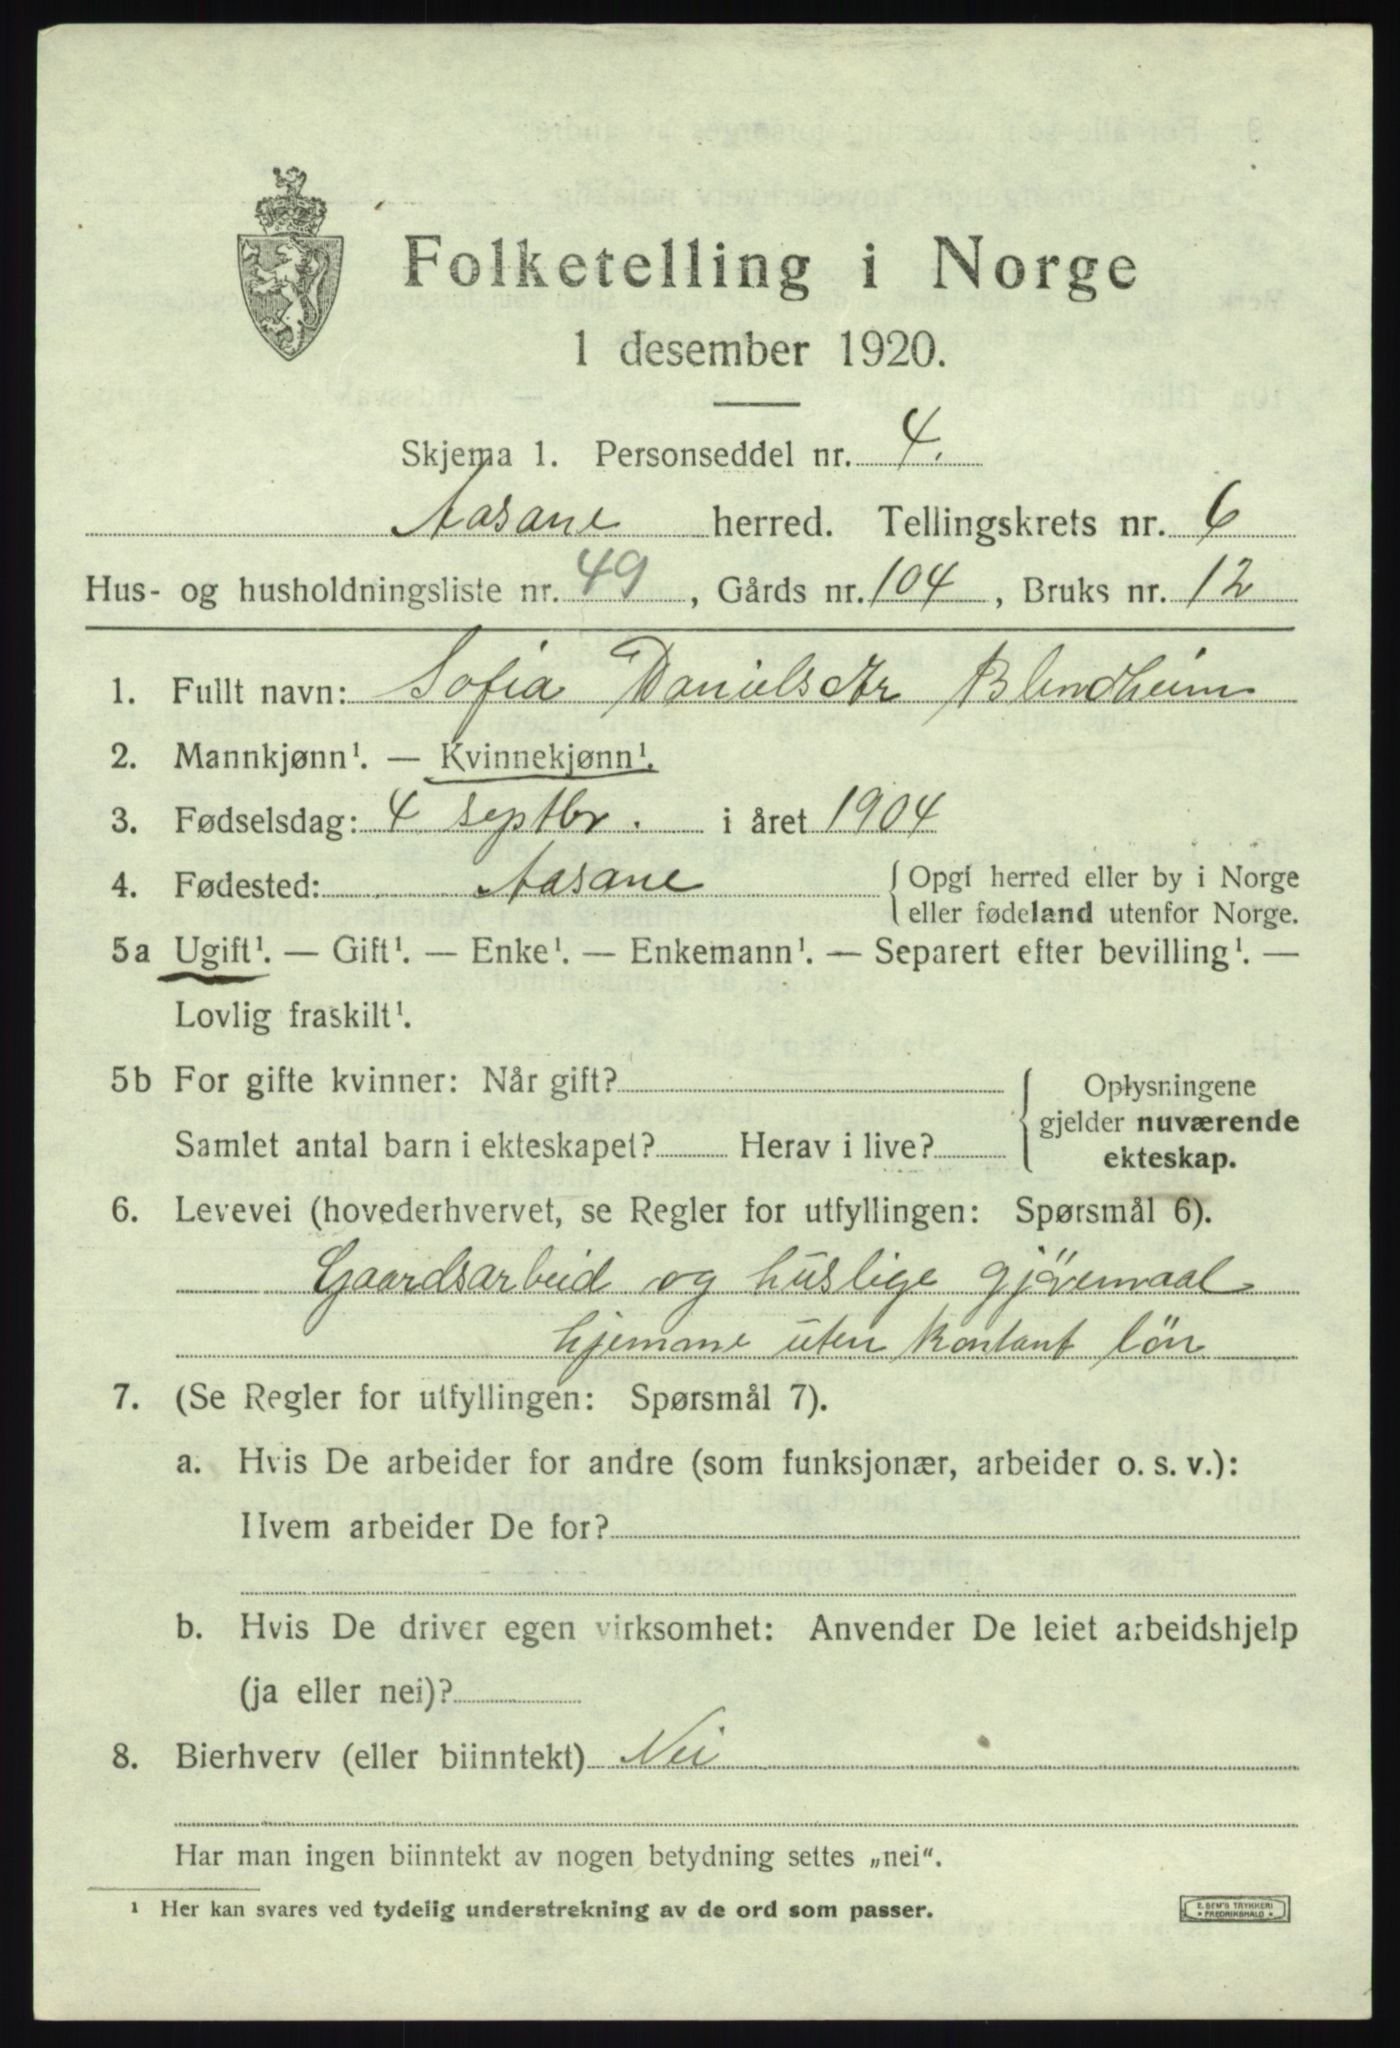 Folketelling i Norge
1 desember 1920.
Skjema 1. Personseddel nr. 4.
Aasane herred. Tellingskrets nr. 6
Hus- og husholdningsliste nr. 49, Gårds nr. 104, Bruks nr. 12
1. Fullt navn: Sofia Danielsdtr Blindheim
2. Mannkjønn¹. — Kvinnekjønn¹.
3. Fødselsdag: 4 septbr. i året 1904
4. Fødested: Aasane {Opgi herred eller by i Norge
eller fødeland utenfor Norge.
5a Ugift¹. — Gift¹. — Enke¹. — Enkemann¹. — Separert efter bevilling¹. —
Lovlig fraskilt¹.
5b For gifte kvinner: Når gift? {Oplysningene
gjelder nuværende
Samlet antal barn i ekteskapet? Herav i live? ekteskap.
6. Levevei (hovederhvervet, se Regler for utfyllingen: Spørsmål 6).
Gaardsarbeid og huslige gjöremaal
hjemme uten kontant lön
7. (Se Regler for utfyllingen: Spørsmål 7).
a. Hvis De arbeider for andre (som funksjonær, arbeider o. s. v.):
Hvem arbeider De for?
b. Hvis De driver egen virksomhet: Anvender De leiet arbeidshjelp
(ja eller nei)?
8. Bierhverv (eller biinntekt) Nei
Har man ingen biinntekt av nogen betydning settes „nei".
¹ Her kan svares ved tydelig understrekning av de ord som passer.
E. SEM'S TRYKKERI
FREDRIKSHALD